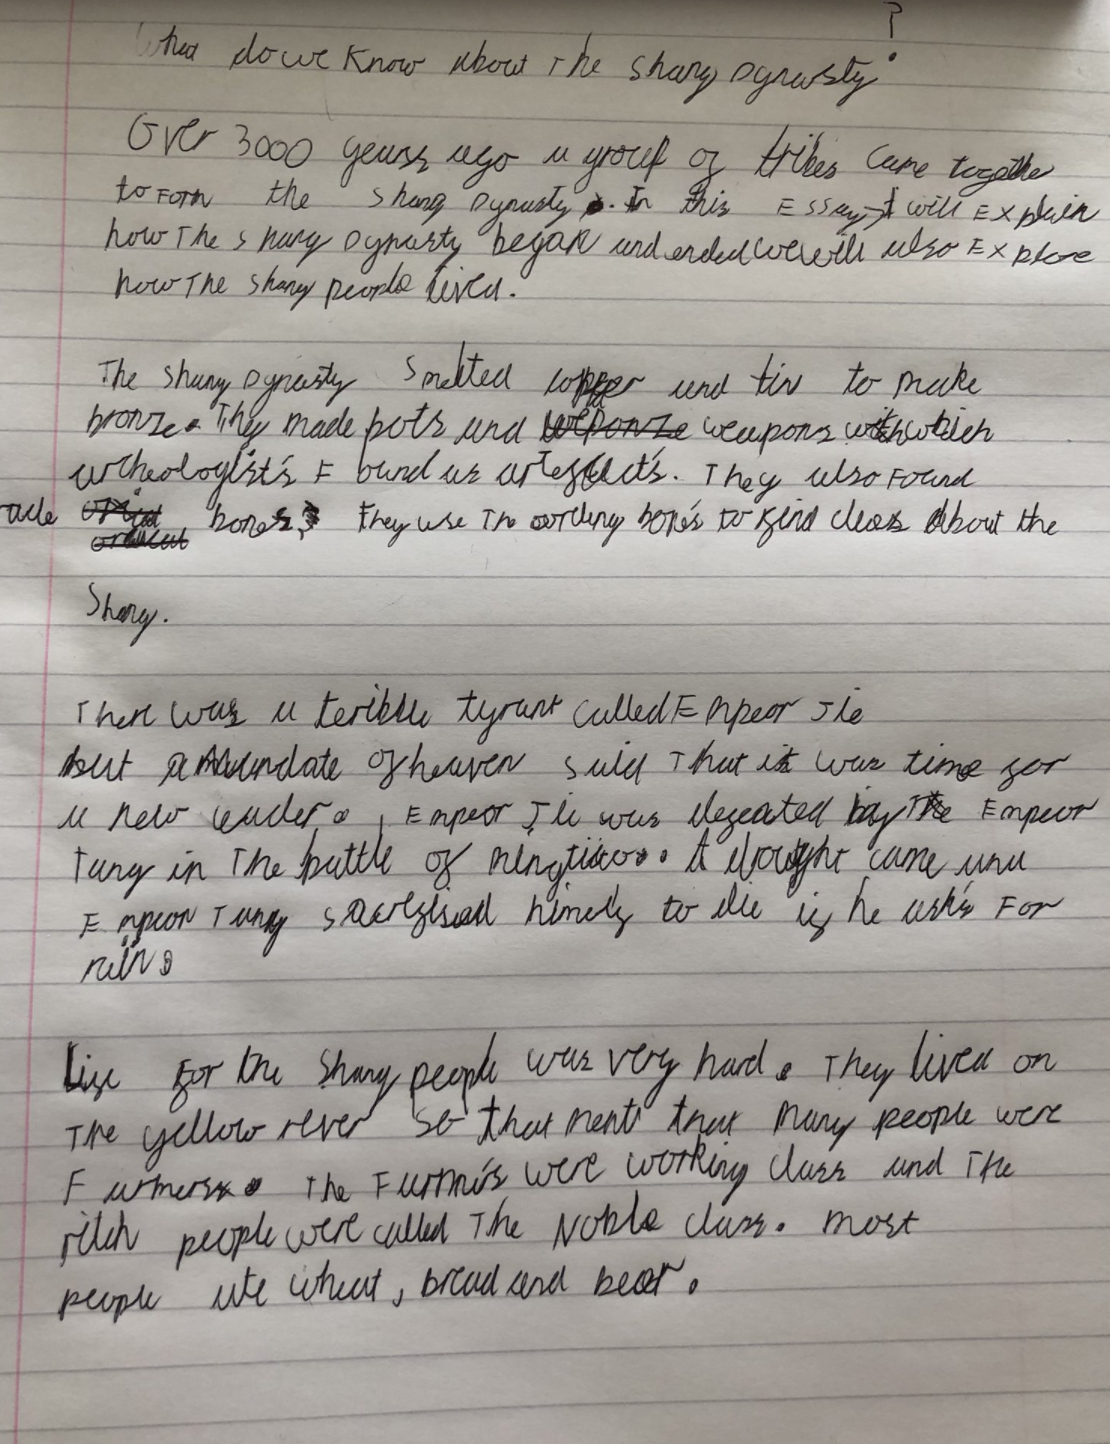 What do we Know about The Shang Dynasty?
Over 3000 years ago a group of tribes Came together
to Form the Shang Dynasty. In this Essay I will Explain
how The Shang Dynasty began and ended we will also Explore
how The Shang people lived.
The Shang Dynasty Smelted copper and tin to make
bronze. They made pots and weponze weapons which
archeologist's Found as artefact's. They also Found
racle bones, they use The bone's to find clues about the
Shang.
There was a terible tyrant called Empeor Jie
but a Mandate of heaven said That it was time for
a new leader. Empeor Jie was defeated by The Empeor
Tang in The battle of A drought came and
Empeor Tang himelf to die if he ask's For
rain.
Life For the Shang people was very hard. They lived on
The yellow rever so that ment that many people were
Farmers. The Farmer's were working class and The
ritch people were called The Noble class. most
people ate wheat, bread and beer.